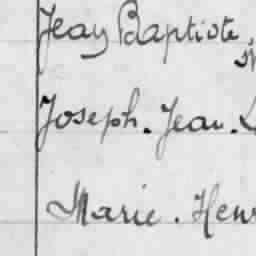 Jean Baptiste,
Joseph. Jean. L
Marie. Hen